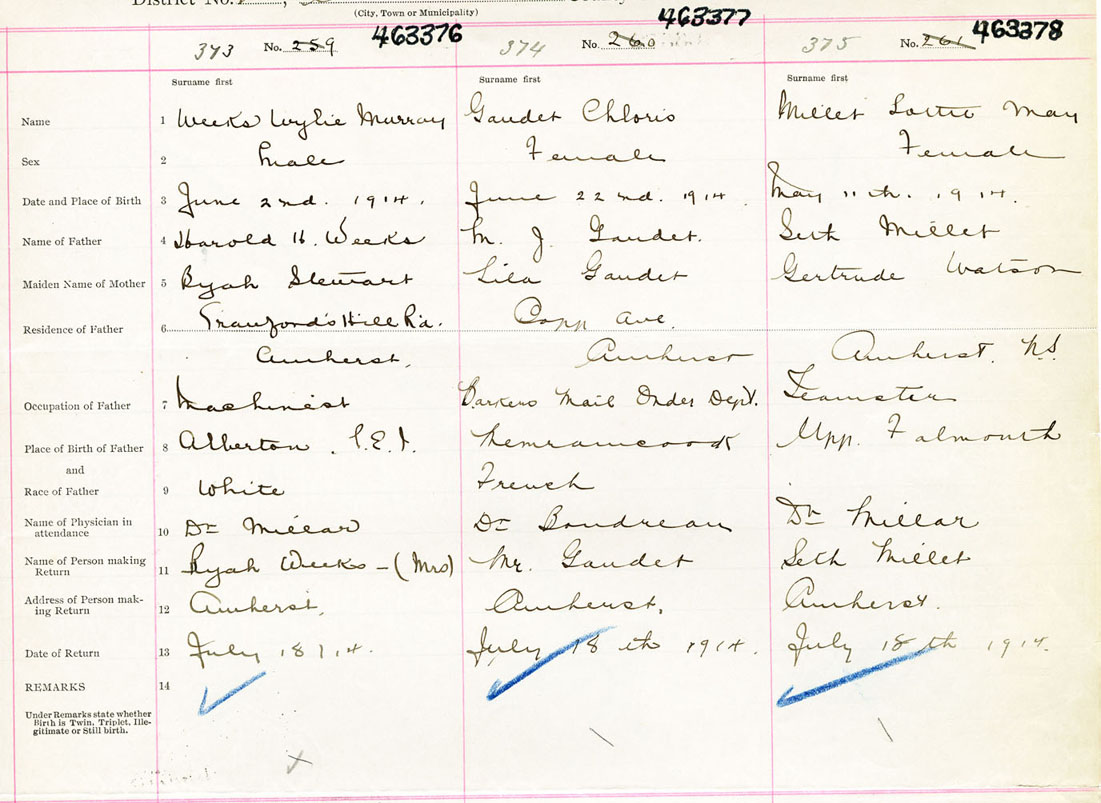 District No.
(City, Town or Municipality)
373 No. 259 463376 374 No. 260 463377 375 No. 261 463378
Surname first Surname first Surname first
Name 1 Weeks Wylie Murray Gaudet Chloris Millet Lottie May
Sex 2 Male Female Female
Date and Place of Birth 3 June 2nd. 1914. June 22nd. 1914 May 11th. 1914.
Name of Father 4 Harold H. Weeks M. J. Gaudet. Seth Millet
Maiden Name of Mother 5 Ryah Stewart Lila Gaudet Gertrude Watson
Residence of Father 6 Hill Rd. Copp Ave.
Amherst, Amherst Amherst. N.S.
Occupation of Father 7 Machinist Barkers Mail Order Dept. Teamster
Place of Birth of Father 8 Alberton, P.E.I. Memramcook Upp. Falmouth
and
Race of Father 9 White French
Name of Physician in
attendance 10 Dr Millar Dr Boudreau Dr Millar
Name of Person making
Return 11 Ryah Weeks - (Mrs) Mr. Gaudet Seth Millet
Address of Person mak-
ing Return 12 Amherst, Amherst, Amherst.
Date of Return 13 July 18/14. July 18th 1914. July 18th 1914.
REMARKS 14
Under Remarks state whether
Birth is Twin, Triplet, Ille-
gitimate or Still birth.